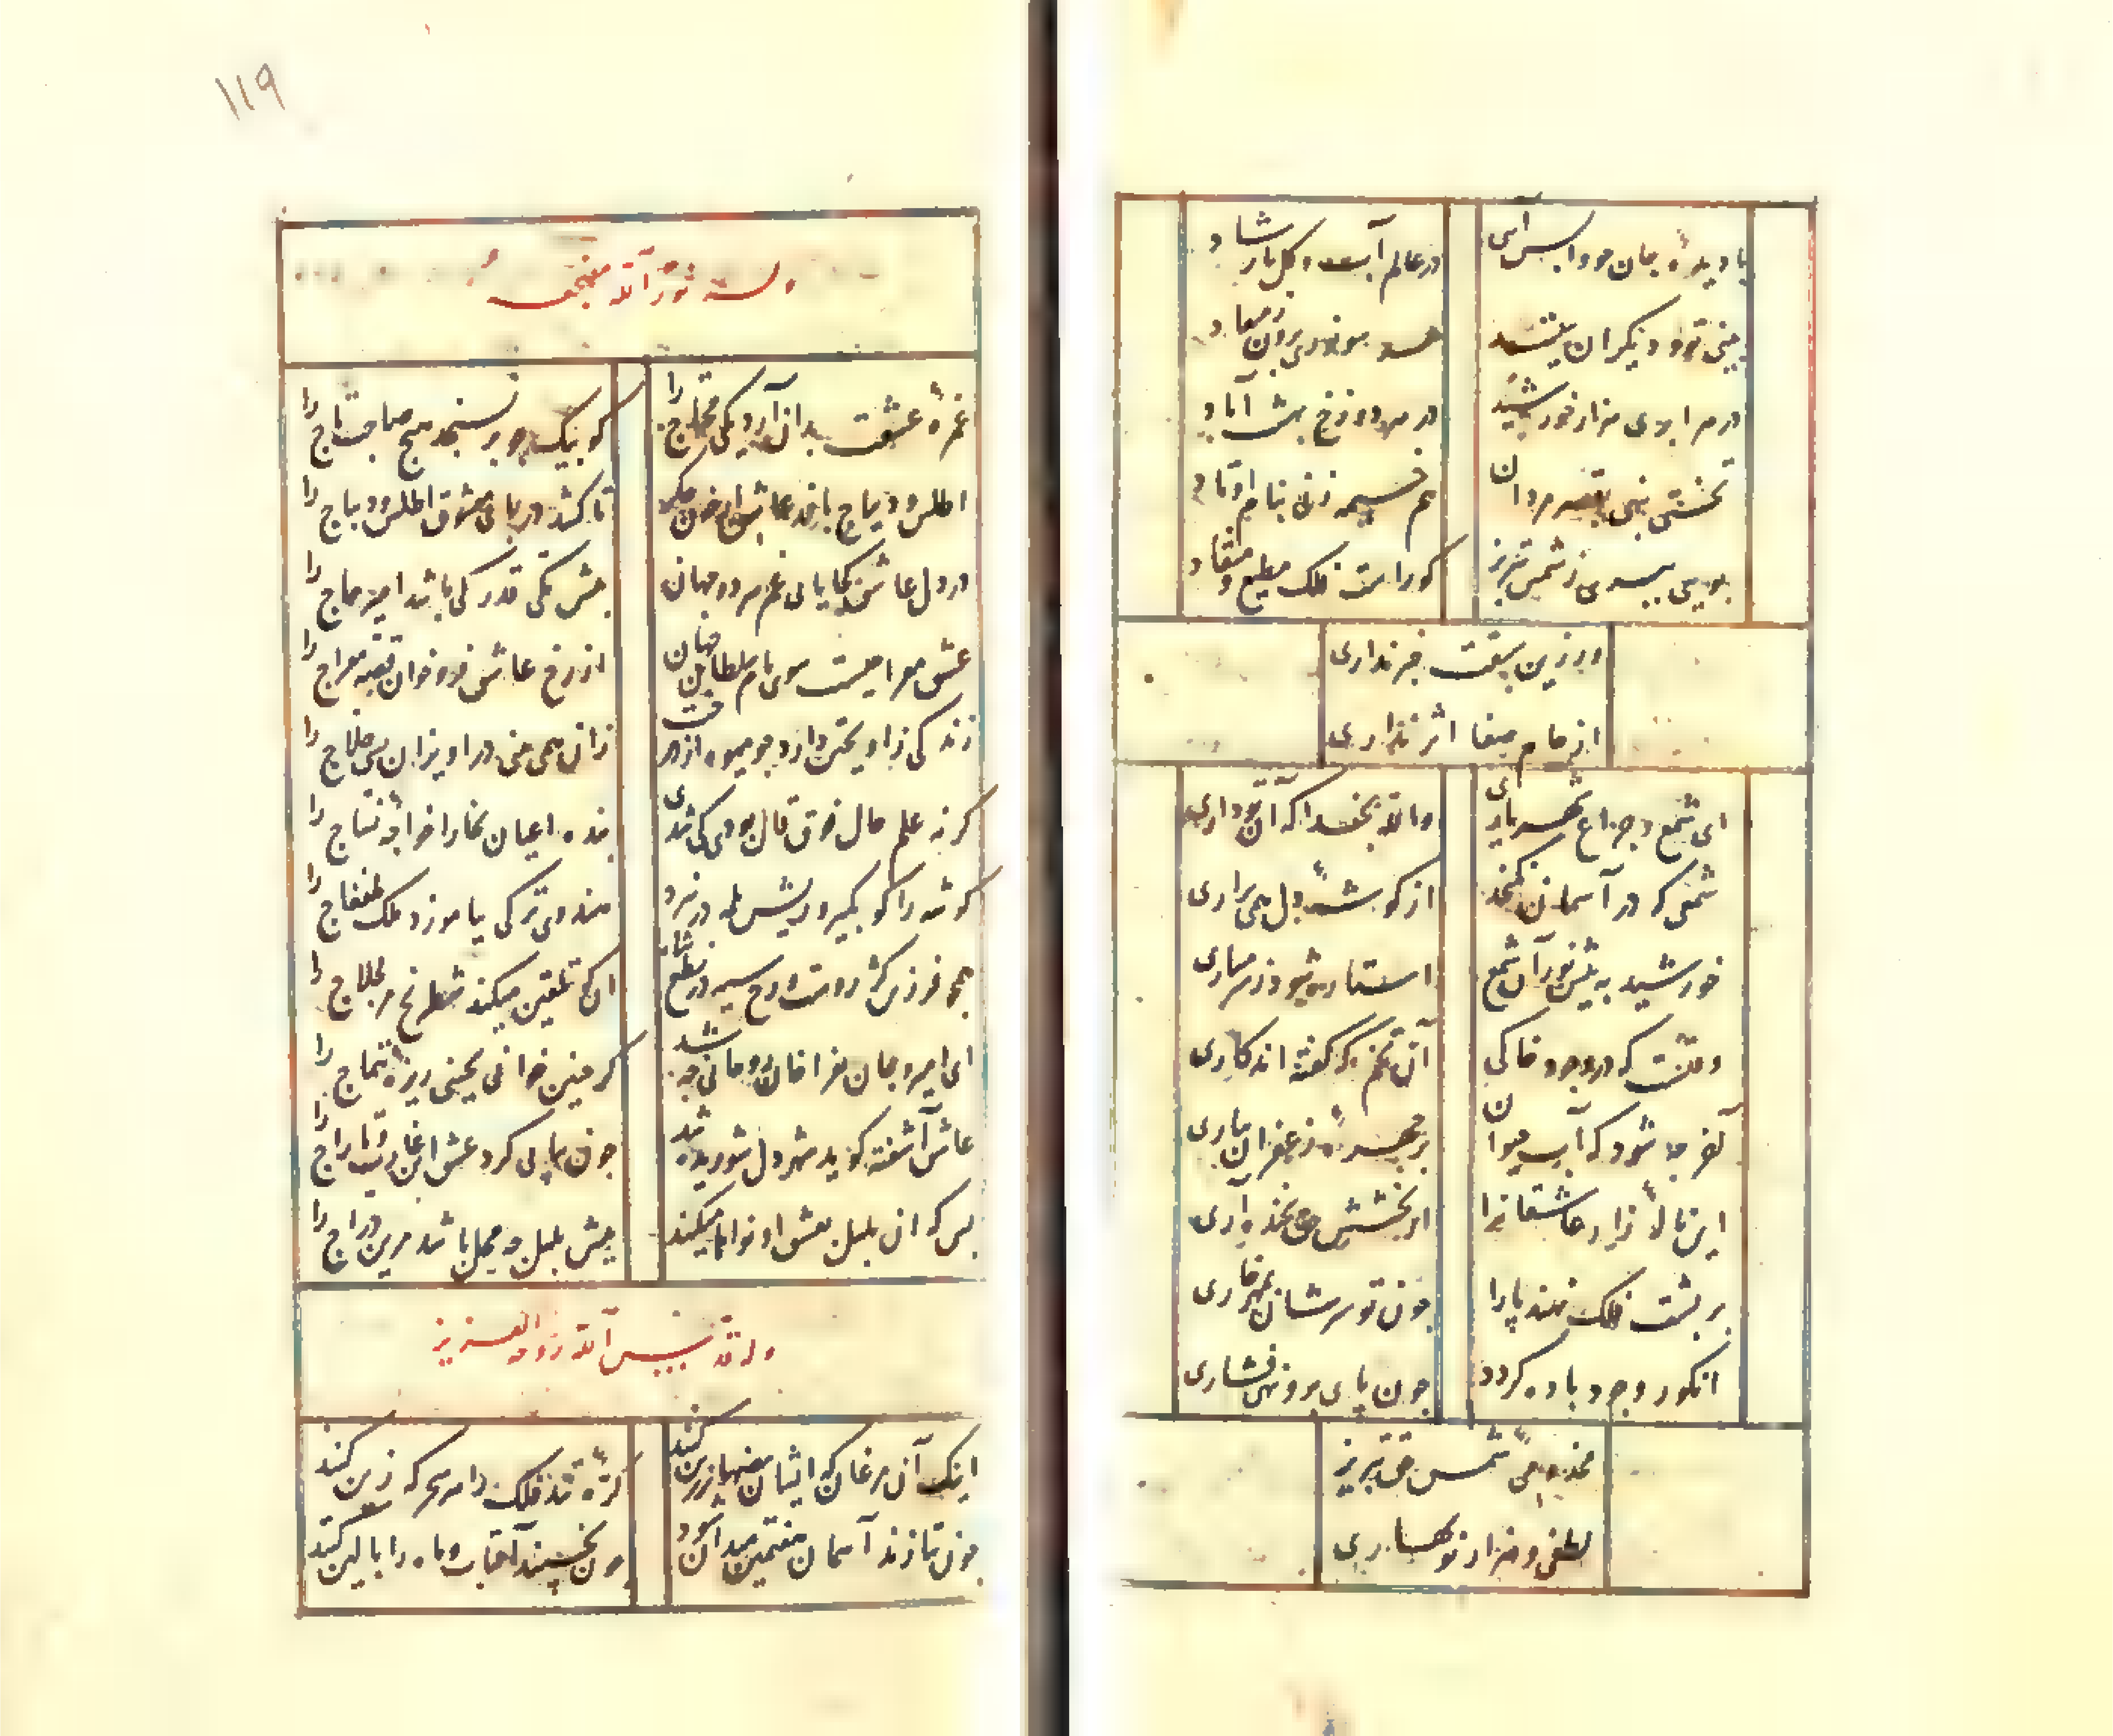 با دیدهٔ جان چو واپس آیی در عالم آب و گل بارشاد
بینی تو و دیگران نبینند
در هر ابروی هزار خورشید در هر دوزخ بهشت آباد
تختی بنهی بقصر مردان هم خیمه زنی ببام اوتاد
بویی ببری ز شمس تبریز کوراست فلک مطیع و منقاد
ور زین سبقت خبر نداری
از جام صفا اثر نداری
ای شمع و چراغ شهریاری والله بخدا که آن تو داری
شمعی که در آسمان نگنجد از گوشهٔ دل همی براری
خورشید به پیش نور آن شمع استاده شود ز شرمساری
وقتست که در وجود خاکی آن تخم که گفته اند کاری
آخر چه شود که آب حیوان بر چهرهٔ زعفران باری
این نالهٔ زار عاشقانرا از بخشش خود بخنده آری
بر پشت فلک نهند پا را چون تو سرشان بمهر خاری
انگور وجود باده گردد چون پای برو نهی فشاری
مخدومی شمس حق تبریز
لطفی و هزار نوبهاری
۱۱۹
وله نور الله مضجعه
غمزهٔ عشقت بدان آرد یکی محتاج را کو بیک جو بر نسنجد هیچ صاحب تاج را
اطلس و دیباج بافد عاشق از خون جگر تا کشد در پای معشوق اطلس و دیباج را
در دل عاشق کجا یابی غم هر دو جهان پیش مکی قدر کی باشد امیر حاج را
عشق معراجیست سوی بام سلطان جهان از رخ عاشق فرو خوان قصه معراج را
زندگی زاویختن دارد چو میوه از درخت زان همی بینی در اویزان پس حلاج را
گر نه علم حال فوق قال بودی کی شدی بنده اعیان بخارا خواجهٔ نساج را
کوسه را کو بگیرد ریش بلمه در نبرد هندوی ترکی بیاموزد ملک طمغاج را
همچو فرزین کژ روست و رخ سیه در نطع شاه آنک تلقین میکند شطرنج مر لجلاج را
ای امیر و جان مغز خان روحانی چه شد گر چنین خوانی بچینی ریزهٔ تتماج را
عاشق آشفته گوید شهر دل شوریده شد چون بپاپی کرد عشق این غارت و تاراج را
بس که آن بلبل بعشق او نواها میکند پیش بلبل چه محل باشد مرین دراج را
وله قدس الله روحه العزیز
اینک آن مرغان که ایشان بیضها زرین کنند کرهٔ تند فلک را هر سحرگه زین کنند
چون بتازند آسمان هفتمین میدان شود چون بخسپند آفتاب و ماه را بالین کنند